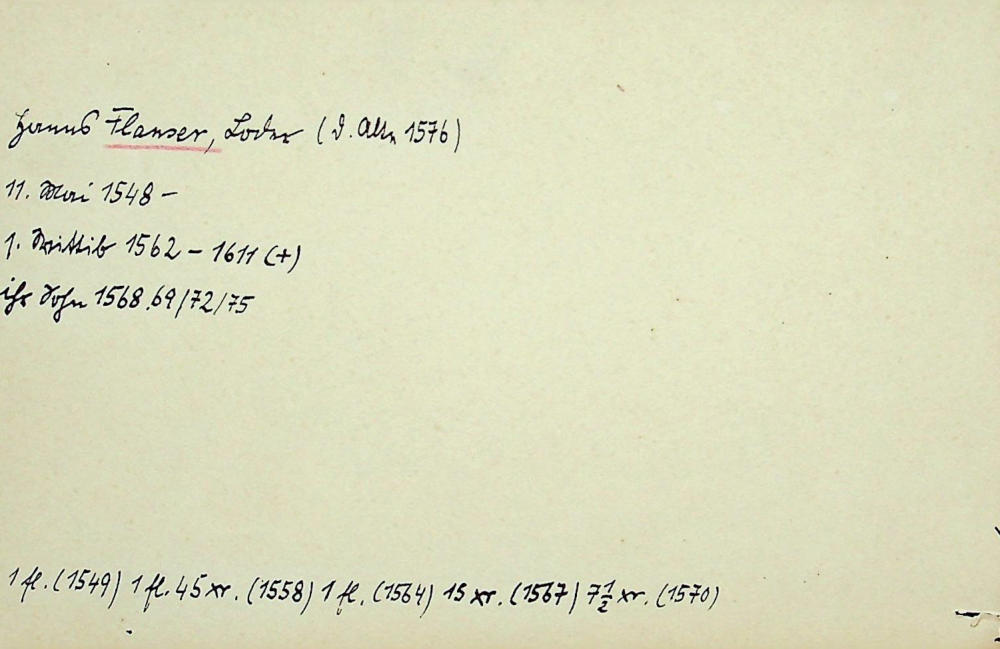 Hanns Flanser, Loder (d. Alte 1576)
11. Mai 1548 –
1. Wittib 1562 – 1611 (+)
ihr Sohn 1568.69/72/75
1 fl. (1549) 1 fl. 45 xr. (1558) 1 fl. (1564) 15 xr. (1567) 7½ xr. (1570)